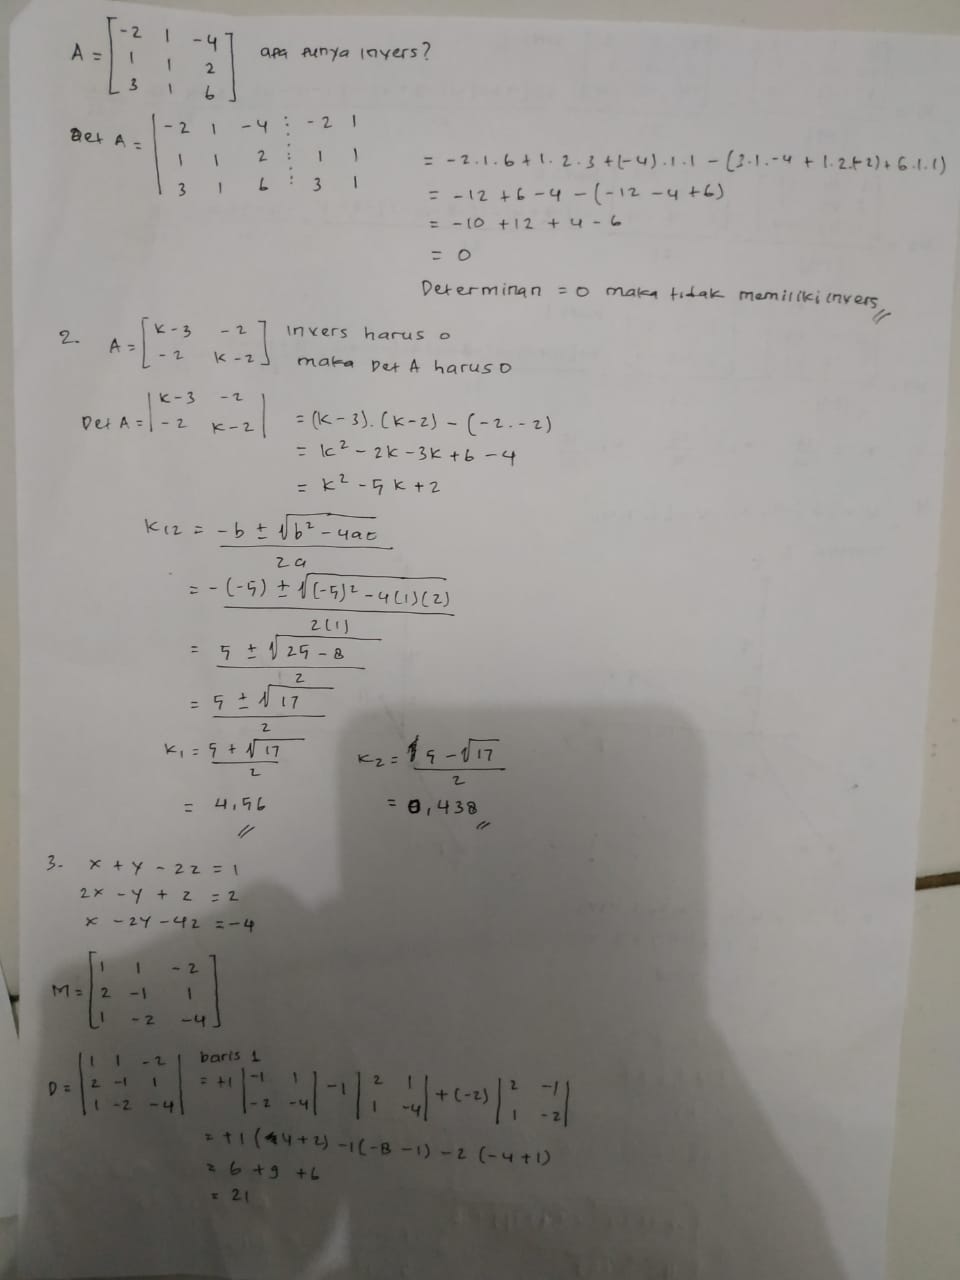 A = [ -2 1 -4 ; 1 1 2 ; 3 1 6 ] apa punya invers?
Det A = | -2 1 -4 ⋮ -2 1 ; 1 1 2 ⋮ 1 1 ; 3 1 6 ⋮ 3 1
= -2.1.6 + 1.2.3 + (-4).1.1 - (3.1.-4 + 1.2.(-2) + 6.1.1)
= -12 + 6 - 4 - (-12 - 4 + 6)
= -10 + 12 + 4 - 6
= 0
Determinan = 0 maka tidak memiliki invers //
2. A = [ k-3 -2 ; -2 k-2 ] invers harus 0
maka Det A harus 0
Det A = | k-3 -2 ; -2 k-2 | = (k-3).(k-2) - (-2.-2)
= k² - 2k - 3k + 6 - 4
= k² - 5k + 2
k12 = -b ± √b² - 4ac / 2a
= -(-5) ± √(-5)² - 4(1)(2) / 2(1)
= 5 ± √25 - 8 / 2
= 5 ± √17 / 2
k₁ = 5 + √17 / 2 k₂ = 5 - √17 / 2
= 4,56 // = 0,438 //
3. x + y - 2z = 1
2x - y + z = 2
x - 2y - 4z = -4
M = [ 1 1 -2 ; 2 -1 1 ; 1 -2 -4 ]
D = | 1 1 -2 ; 2 -1 1 ; 1 -2 -4 | baris 1
= +1 | -1 1 ; -2 -4 | -1 | 2 1 ; 1 -4 | + (-2) | 2 -1 ; 1 -2 |
= +1 (4+2) -1 (-8 -1) -2 (-4+1)
= 6 + 9 + 6
= 21